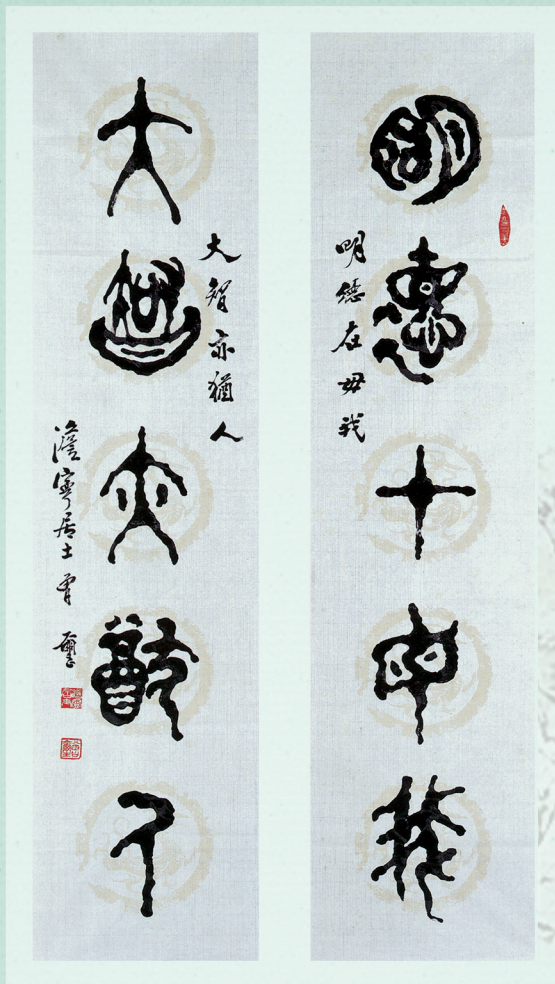 明德在毋我
明德在毋我
大智亦猶人
大智亦猶人
澹寧居士肖璽